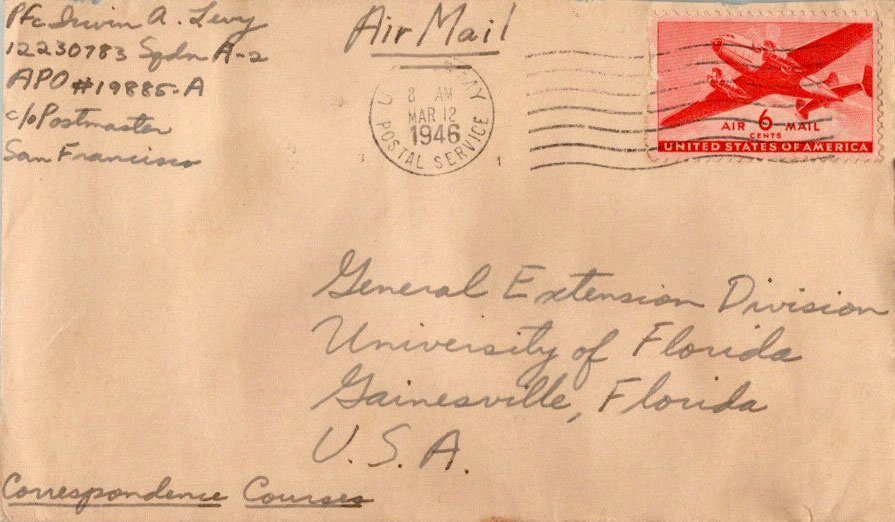 Pfc Irwin A. Levy
12230783 Sqdn A-2
APO #19885-A
c/o Postmaster
San Francisco
Air Mail
8 AM
MAR 12
1946
POSTAL SERVICE
AIR 6 MAIL
CENTS
UNITED STATES OF AMERICA
General Extension Division
University of Florida
Gainesville, Florida
U.S.A.
Correspondence Courses